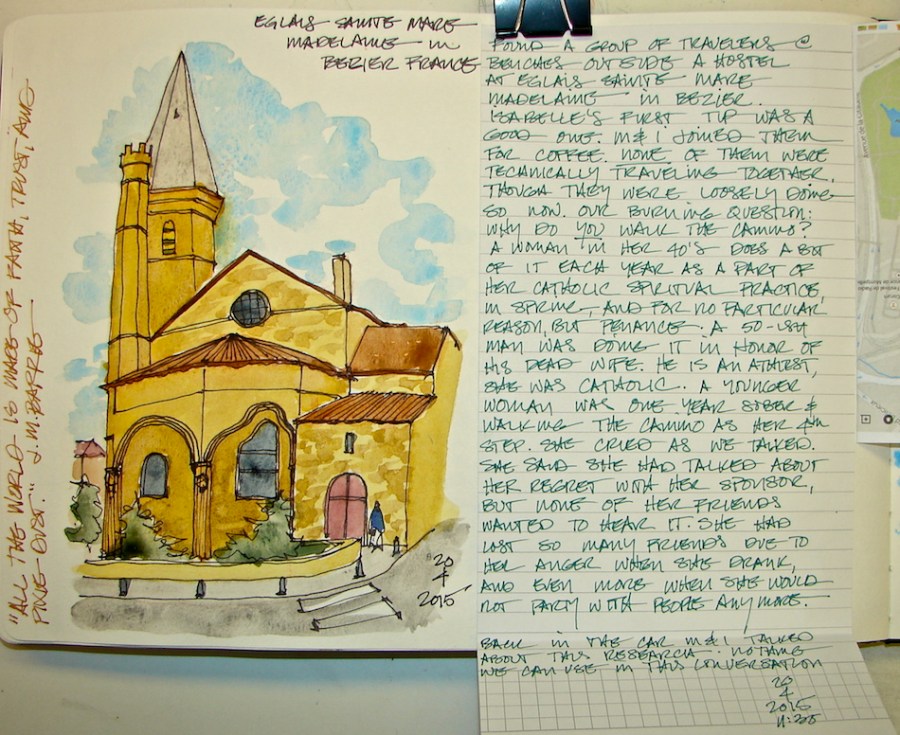 EGLAIS SAINTE MARE
MADELAINE in
BEZIER FRANCE
"ALL THE WORLD IS MADE OF FAITH, TRUST, AND
PIXIE DUST." J.M. BARRIE
20
4
2015
FOUND A GROUP OF TRAVELERS @
BENCHES OUTSIDE A HOSTEL
AT EGLAIS SAINTE MARE
MADELAINE in BEZIER.
ISABELLE'S FIRST TIP WAS A
GOOD ONE. M & I JOINED THEM
FOR COFFEE. NONE OF THEM WERE
TECHNICALLY TRAVELING TOGETHER.
THOUGH THEY WERE LOOSELY DOING
SO NOW. OUR BURNING QUESTION:
WHY DO YOU WALK THE CAMINO?
A WOMAN IN HER 40'S DOES A BIT
OF IT EACH YEAR AS A PART OF
HER CATHOLIC SPIRITUAL PRACTICE,
IN SPRING, AND FOR NO PARTICULAR
REASON, BUT PENANCE. A 50-ISH
MAN WAS DOING IT IN HONOR OF
HIS DEAD WIFE. HE IS AN ATHEIST,
SHE WAS CATHOLIC. A YOUNGER
WOMAN WAS ONE YEAR SOBER &
WALKING THE CAMINO AS HER 4TH
STEP. SHE CRIED AS WE TALKED.
SHE SAID SHE HAD TALKED ABOUT
HER REGRET WITH HER SPONSOR,
BUT NONE OF HER FRIENDS
WANTED TO HEAR IT. SHE HAD
LOST SO MANY FRIENDS DUE TO
HER ANGER WHEN SHE DRANK,
AND EVEN MORE WHEN SHE WOULD
NOT PARTY WITH PEOPLE ANYMORE.
BACK IN THE CAR M & I TALKED
ABOUT THIS RESEARCH. NOTHING
WE CAN USE IN THIS CONVERSATION
20
4
2015